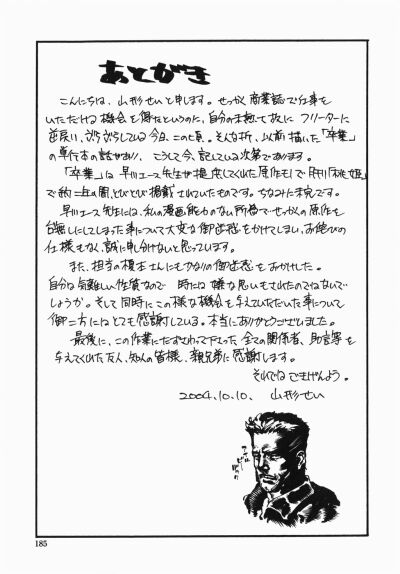 あとがき
こんにちは、山形せいと申します。せっかく商業誌で仕事を
いただける機会を得たというのに、自分の未熟で故に フリーターに
逆戻り、ぶらぶらしている今日この頃。そんな折、以前描いた「卒業」
の単行本の話があり、こうして今、記している次第であります。
「卒業」は 早川エース先生が提供してくれた原作をもとで 月刊「桃姫」
で約二年の間、とびとび掲載されていたものです。ちなみに未完です。
早川エース先生には、私の漫画能力のない所為で せっかくの原作を
台無しにしてしまった事について 大変な御迷惑をかけてしまい、お詫びの
仕様もなく、誠に申し分けないと思っています。
また、担当の榎本さんにもかなりの御迷惑をおかけした。
自分は気難しい性質なので 時には嫌な思いもされたのではないで
しょうか。そして同時にこの様な機会を与えていただいた事について
御二方にはとても感謝している。本当にありがとうございました。
最後に、この作業にたずさわって下さった全ての関係者、助言等を
与えてくれた友人、知人の皆様、親兄弟に感謝します。
それではごきげんよう。
2004.10.10. 山形せい
185